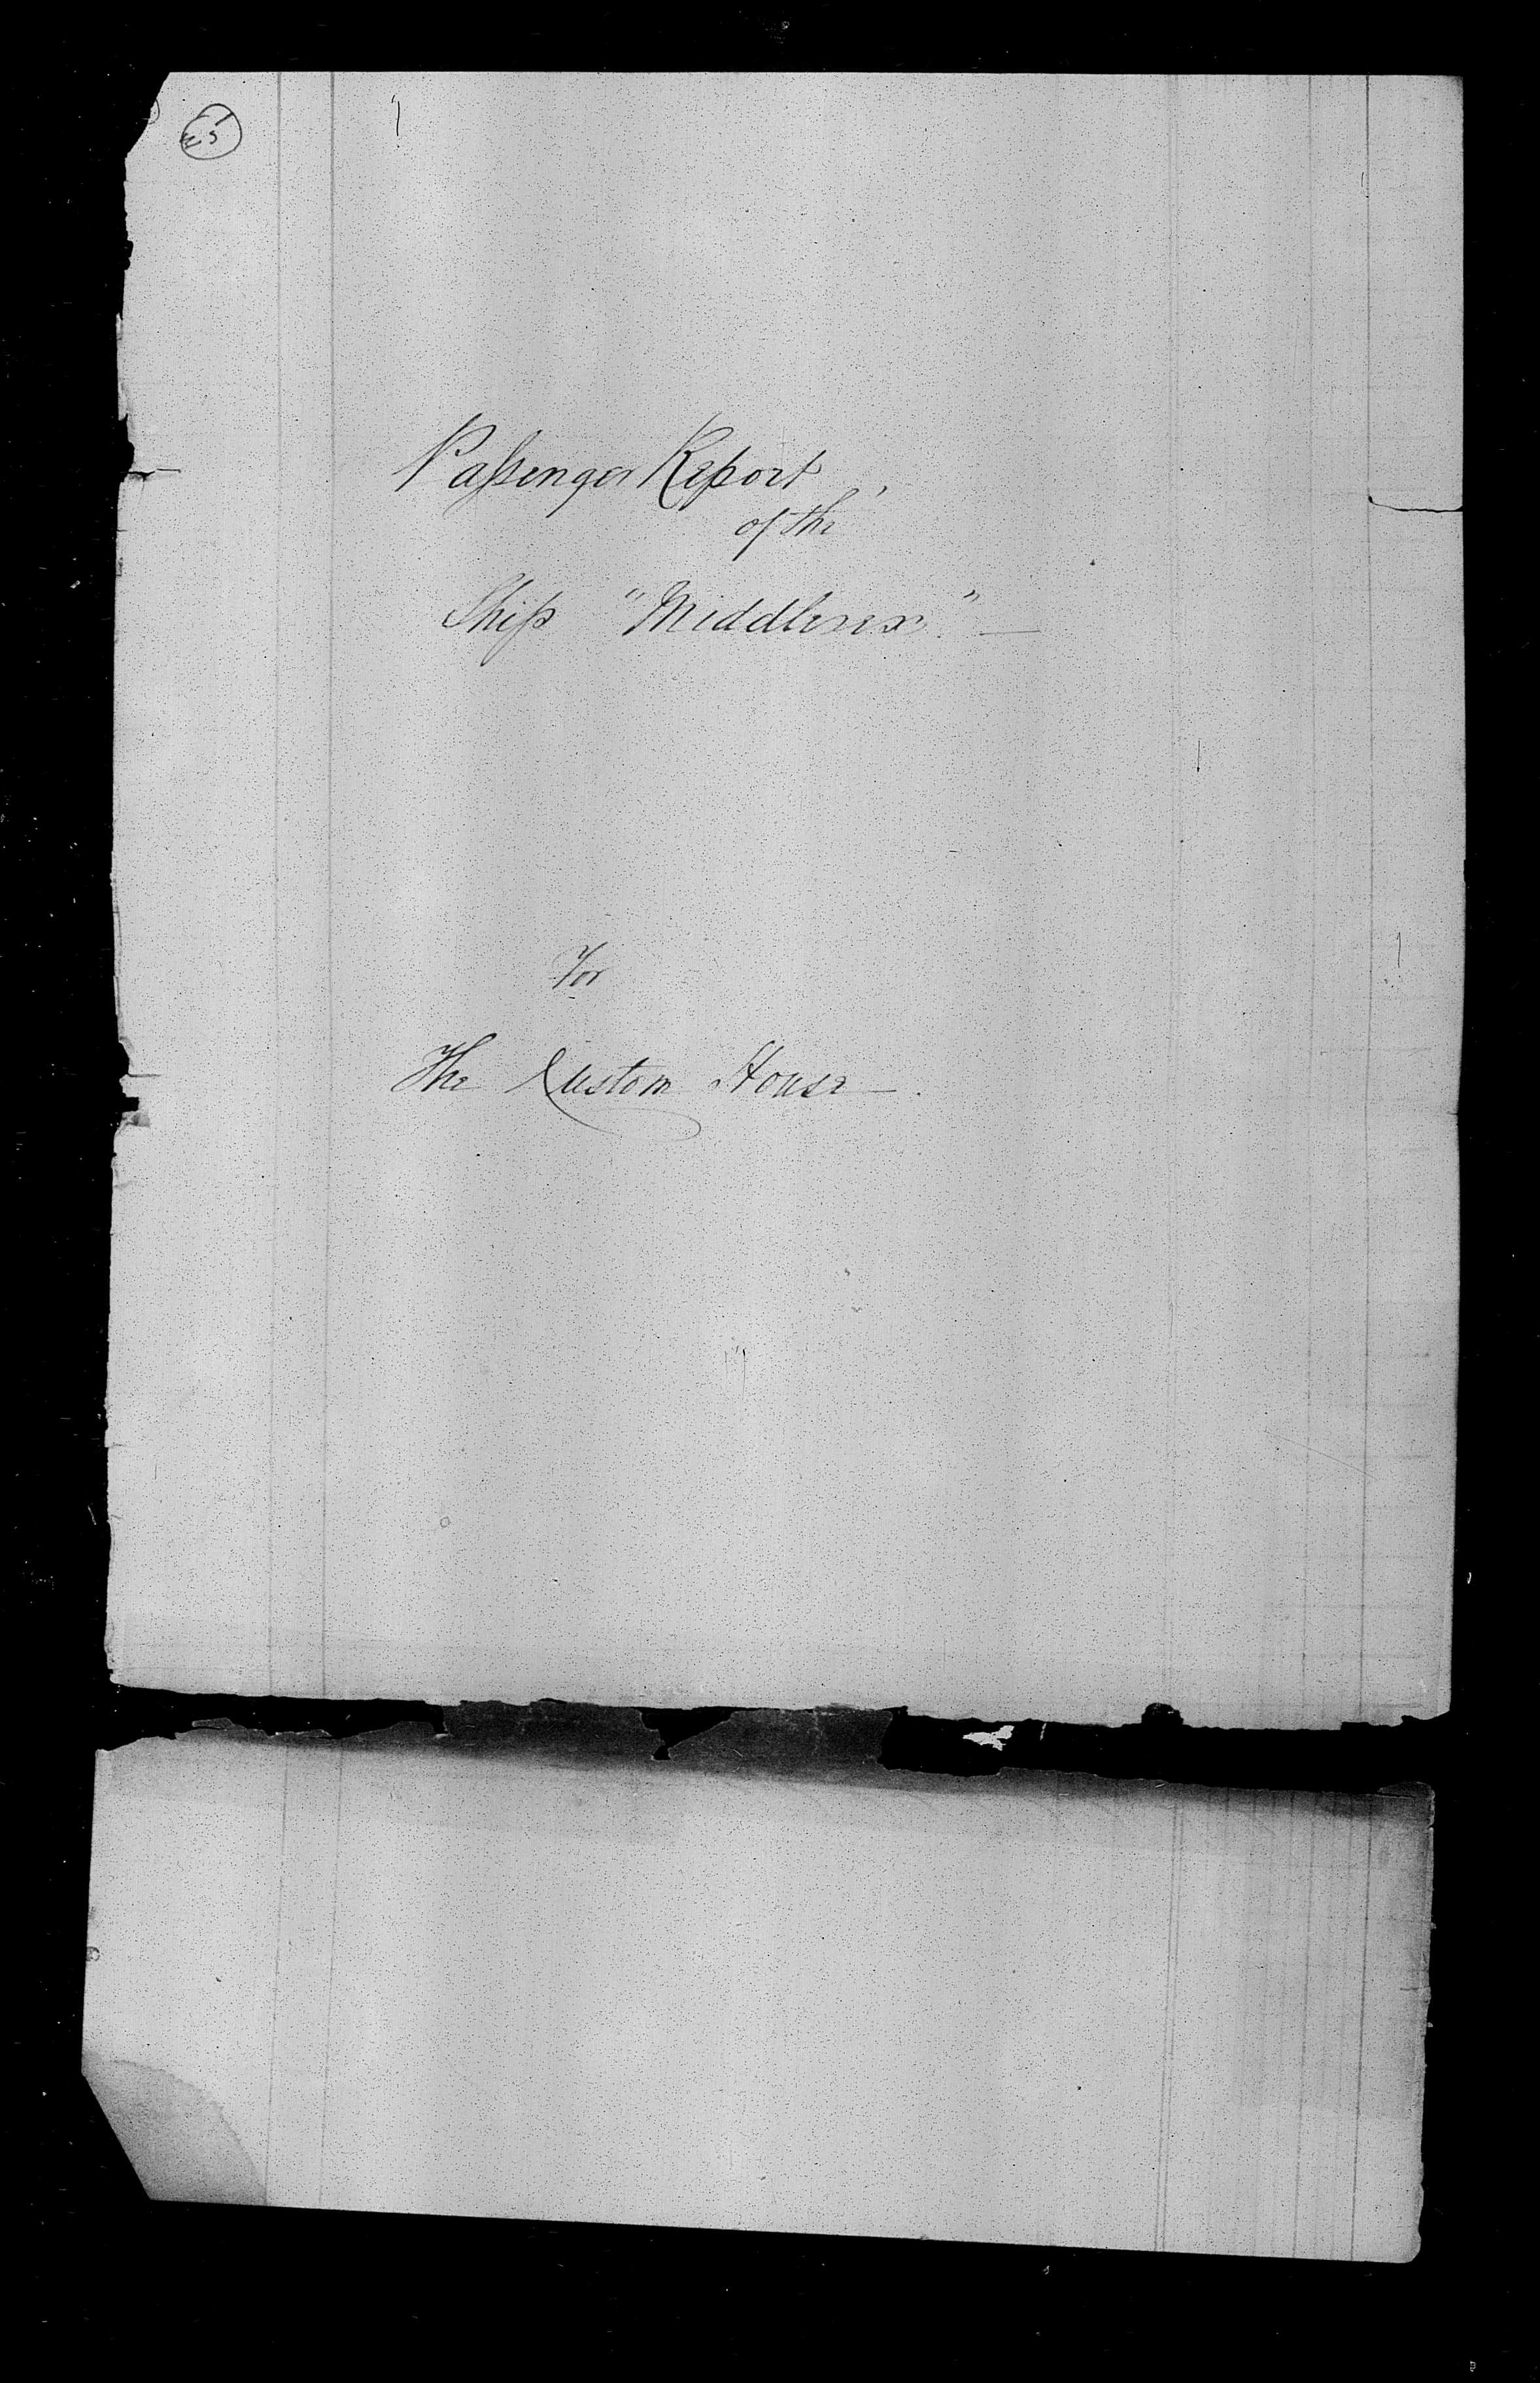 Passenger Report
of the
Ship "Middlesex".—
For
The Custom House—.